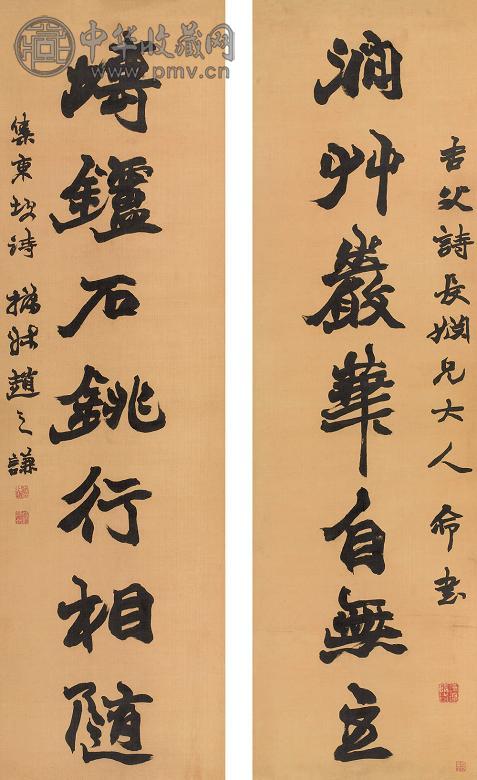 中华收藏网
www.pmv.cn
吉父詩長姻兄大人 命書
澗艸巖華自無主
塼鑪石銚行相随
集東坡詩 撝叔趙之謙